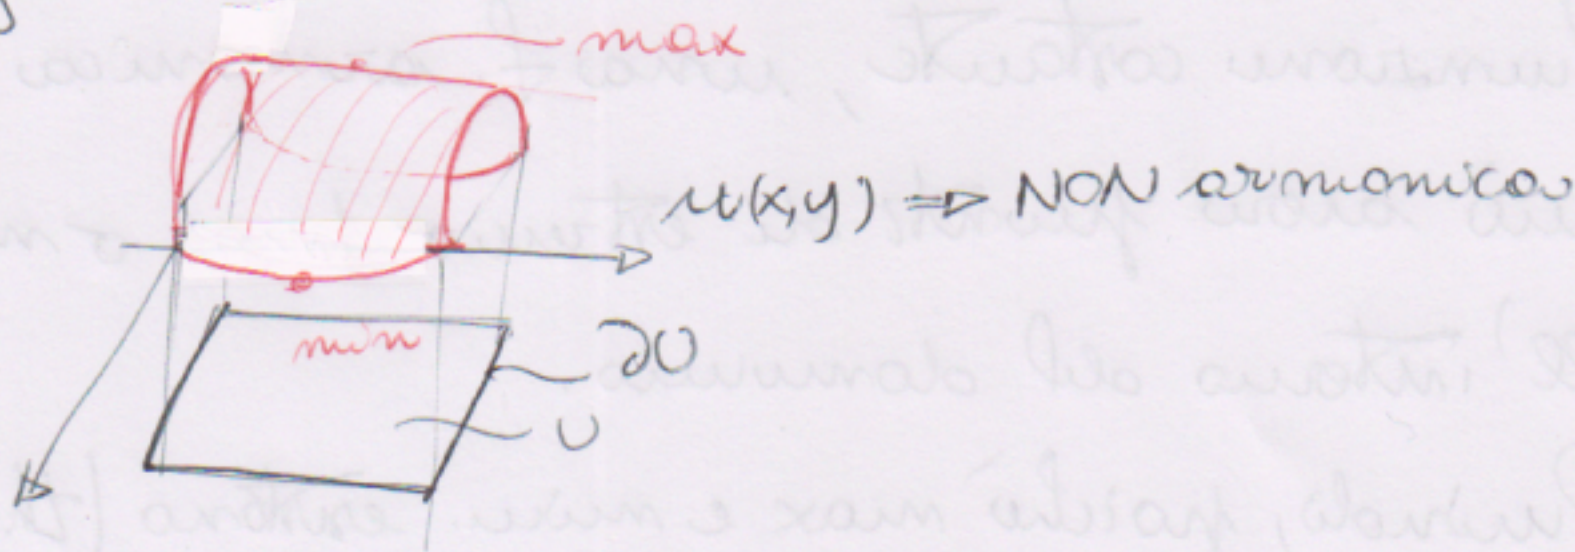 max
u(x,y) ⇒ NON armonica
min
∂U
U